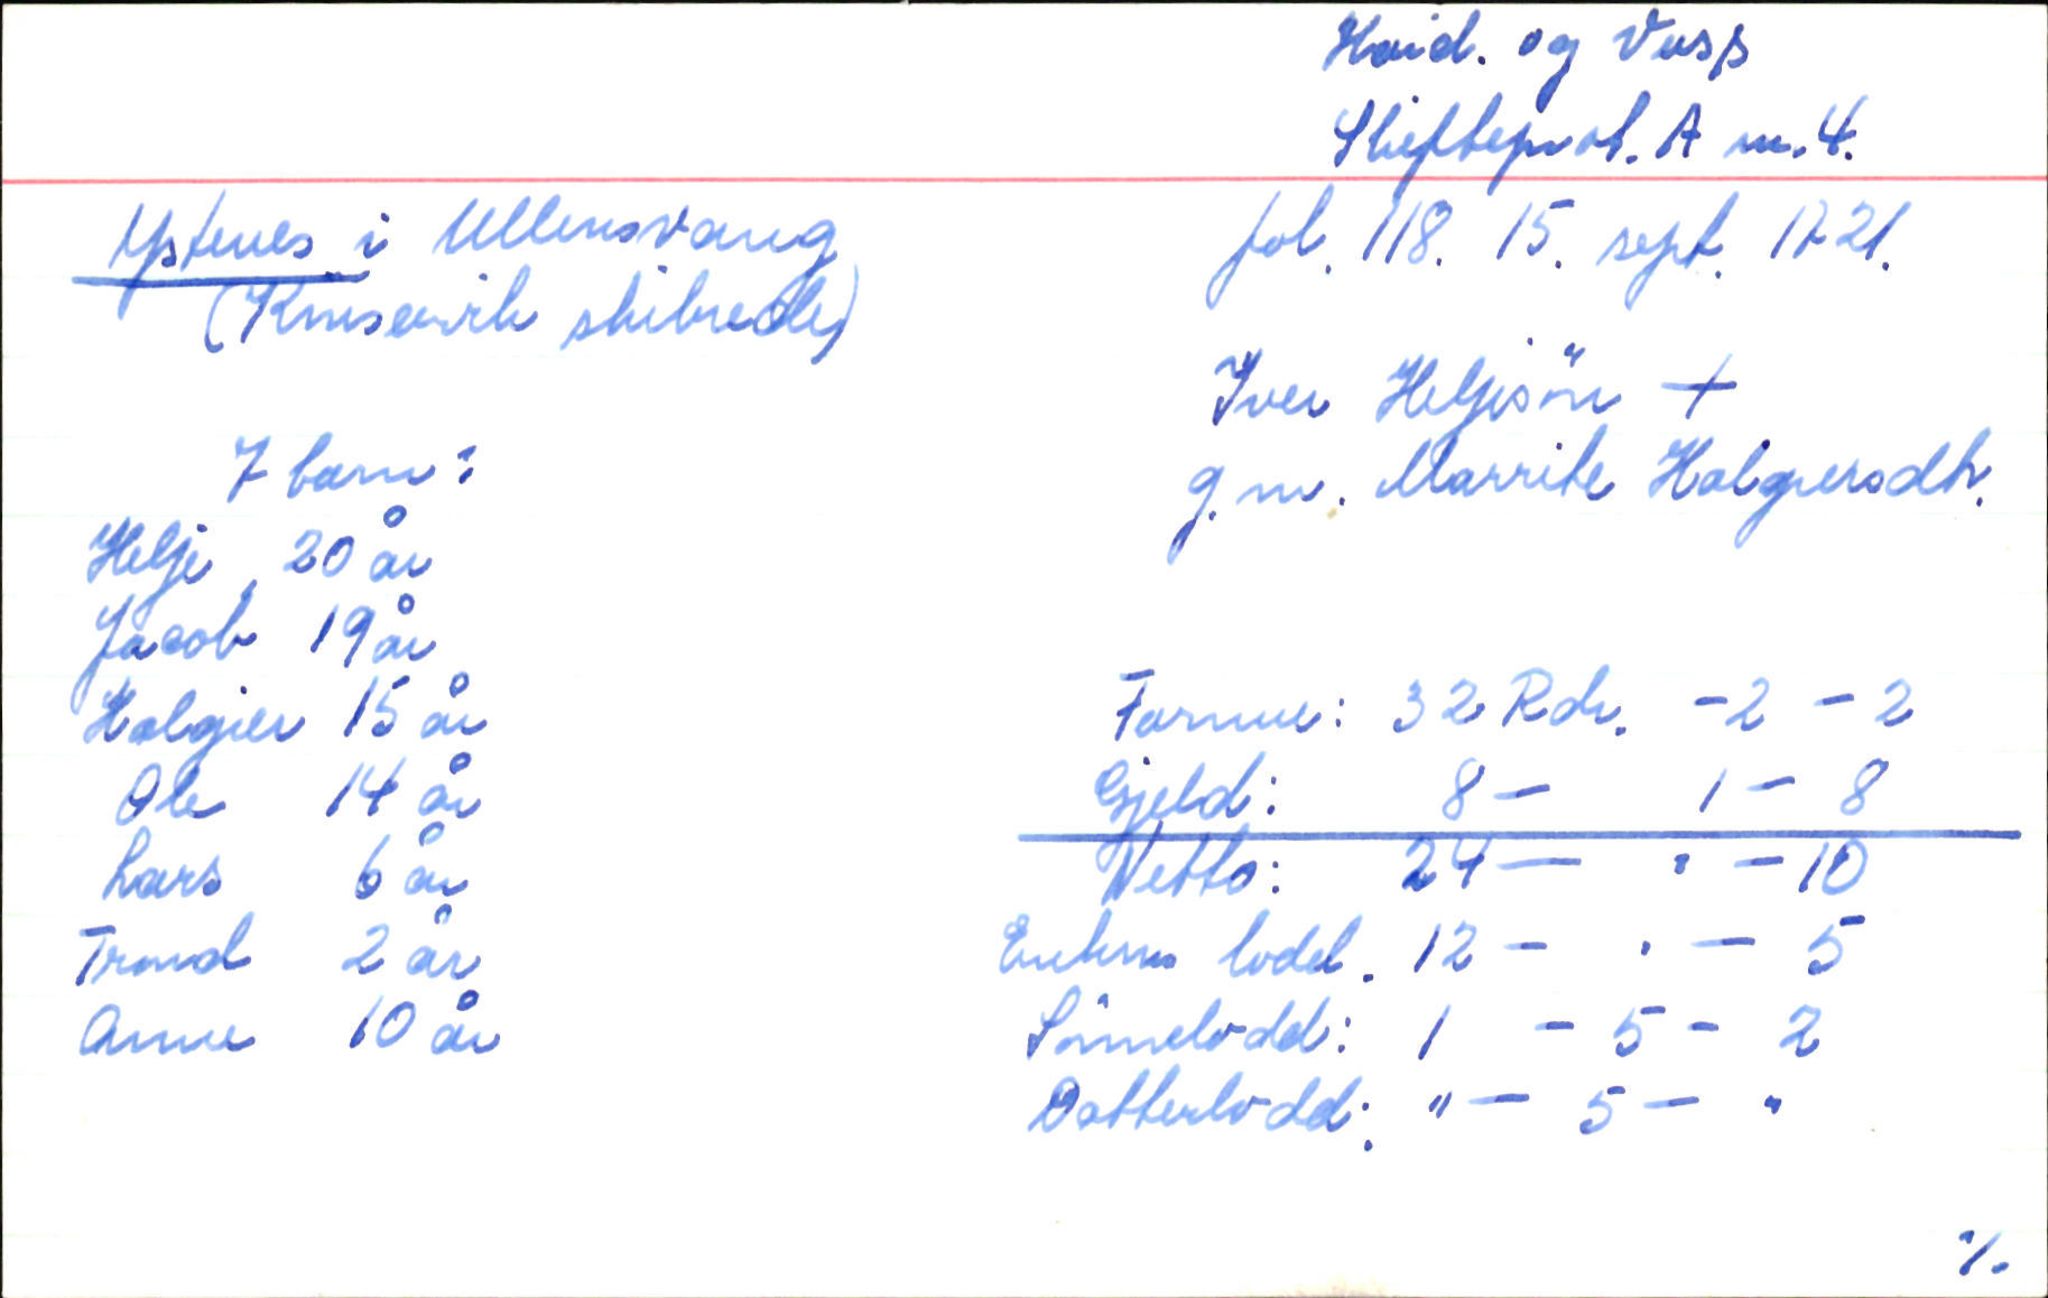 Hard. og Voss
Skifteprot. A nr. 4.
Ystenes i Ullensvang
fol. 118. 15. sept. 1721.
(Kinservik skibrede)
Iver Heljesön +
g. m. Marrite Holgiersdtr.
7 barn:
Helje 20 år
Jacob 19 år
Holgier 15 år
Ole 14 år
Lars 6 år
Trond 2 år
Anne 10 år
Formue: 32 Rdr. - 2 - 2
Gjeld: 8 - 1 - 8
Netto: 24 - " - 10
Enkens lodd. 12 - " - 5
Sönnelodd: 1 - 5 - 2
Dotterlodd: " - 5 - "